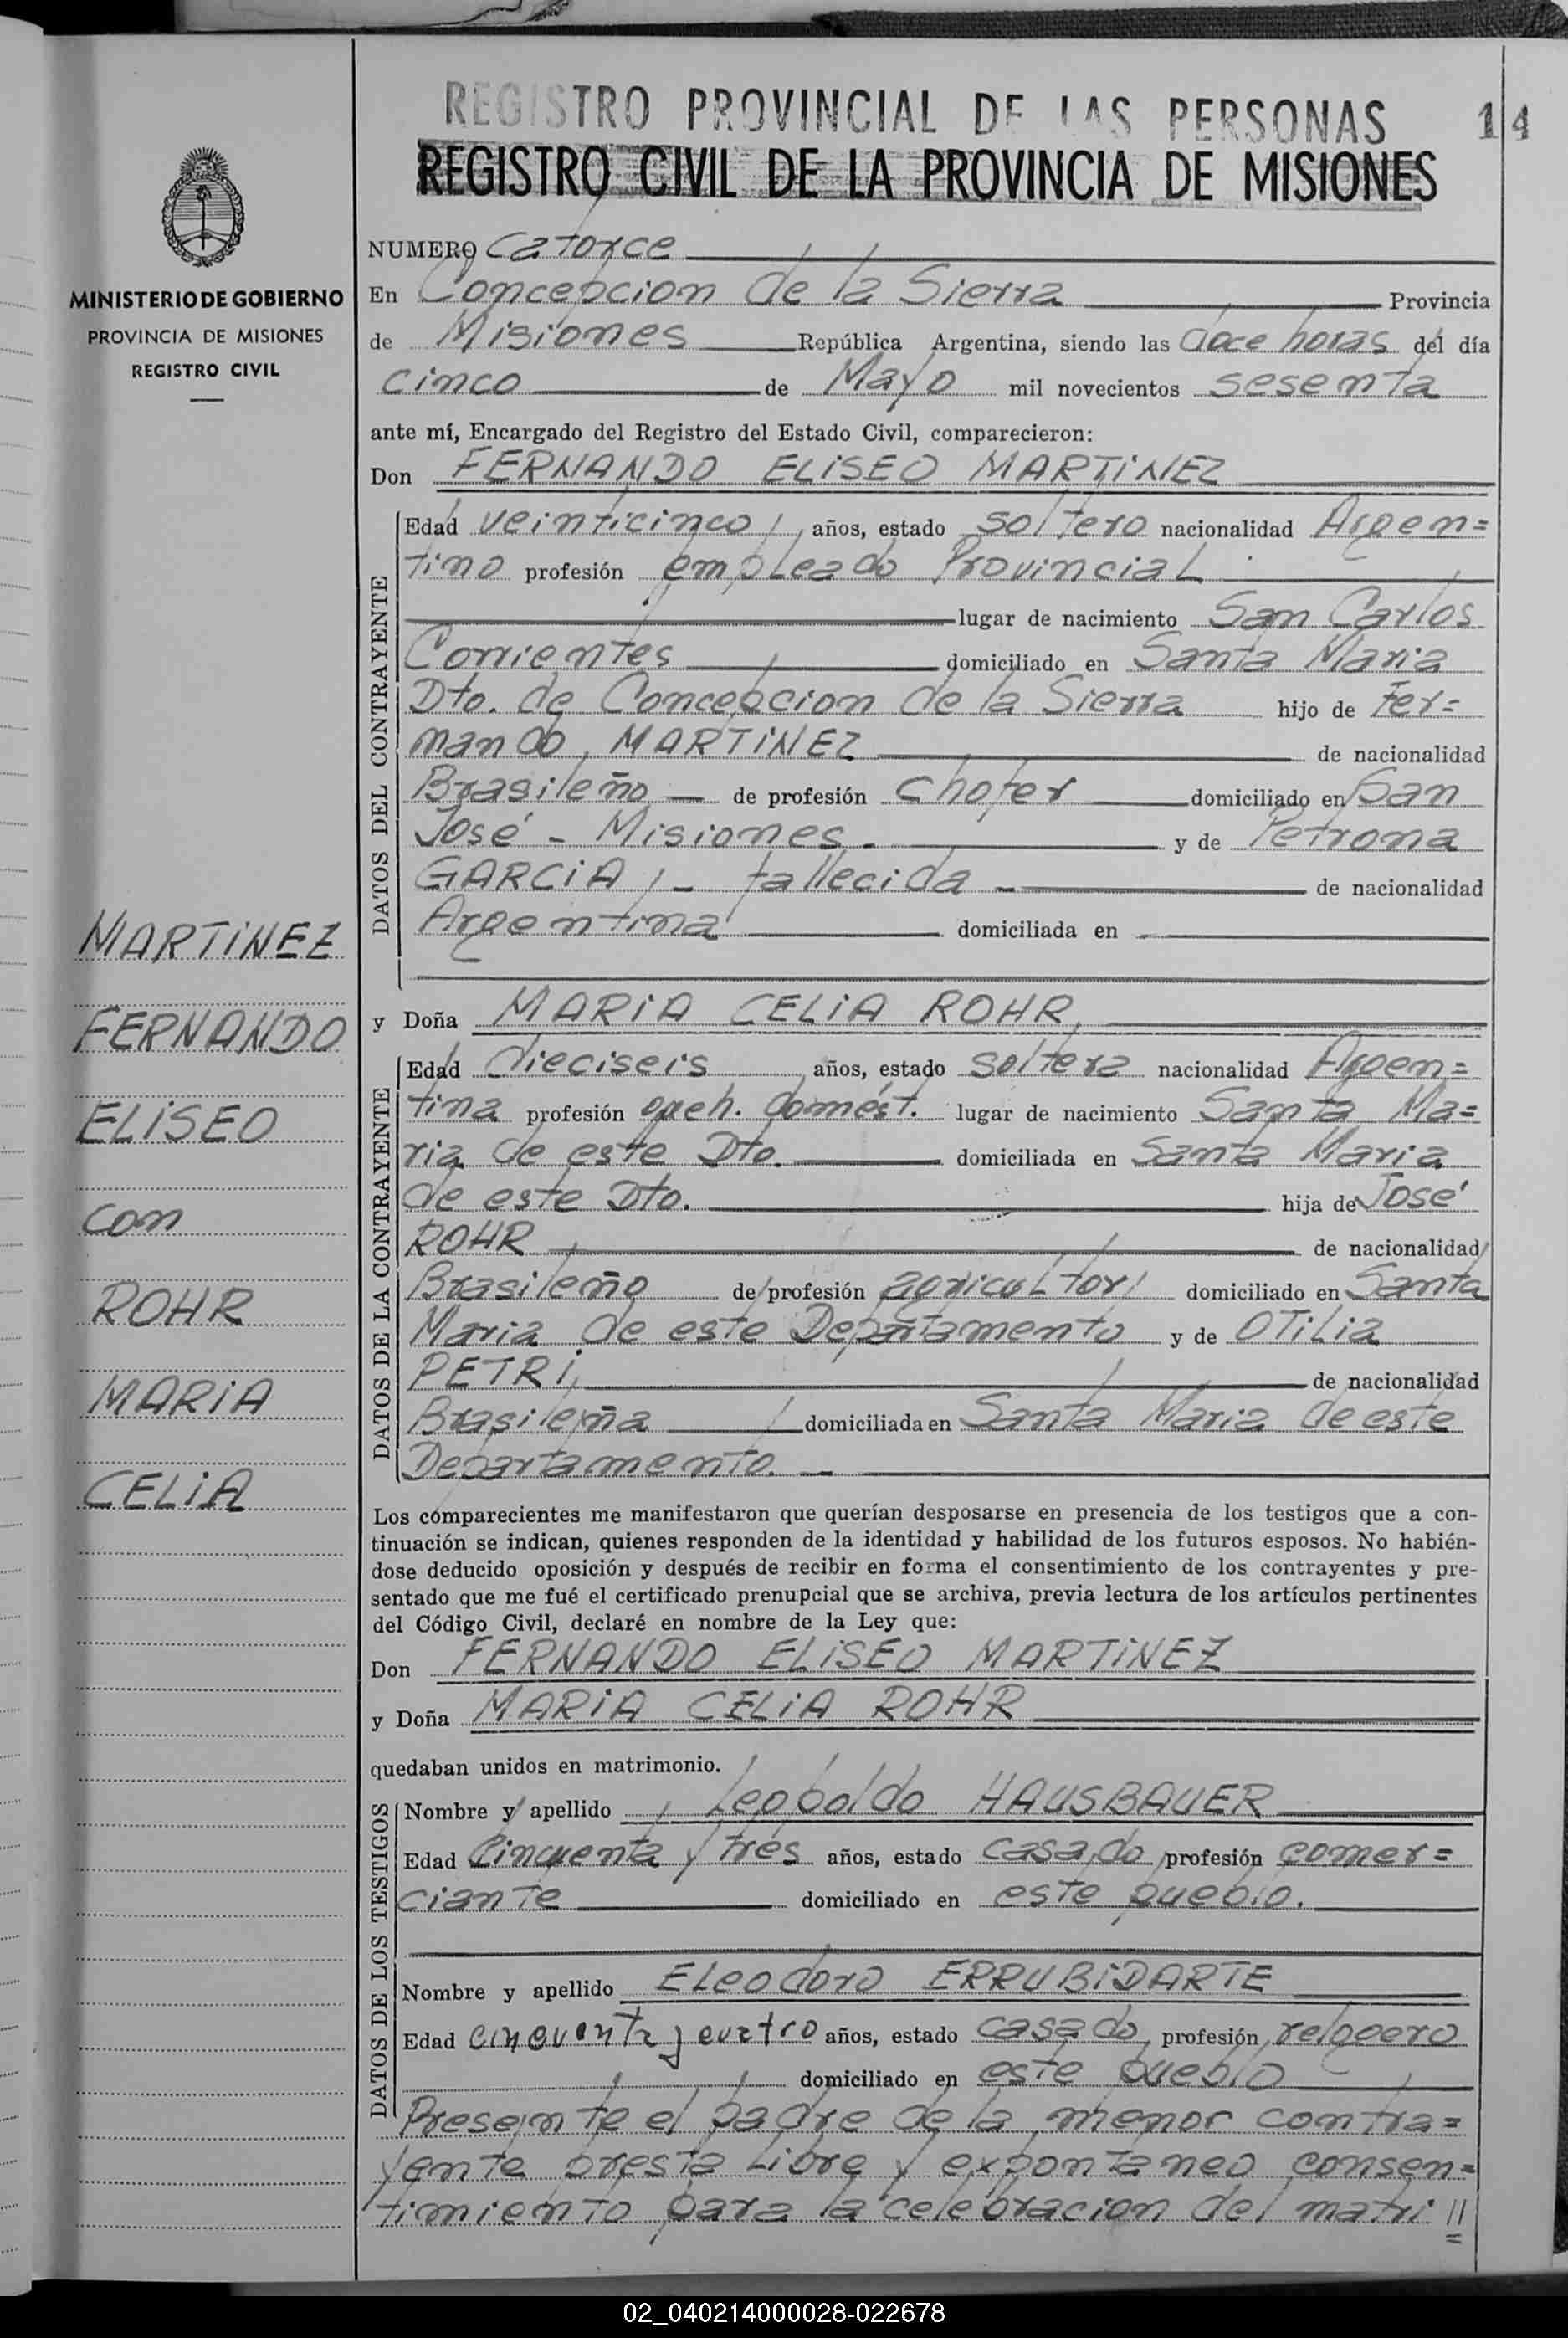 REGISTRO PROVINCIAL DE LAS PERSONAS
14
REGISTRO CIVIL DE LA PROVINCIA DE MISIONES
MINISTERIO DE GOBIERNO
PROVINCIA DE MISIONES
REGISTRO CIVIL
MARTiNEZ
FERNANDO
ELiSEO
con
ROHR
MARiA
CELiA
NUMERO Catorce
En Concepcion de la Sierra Provincia
de Misiones República Argentina, siendo las doce horas del día
cinco de Mayo mil novecientos sesenta
ante mí, Encargado del Registro del Estado Civil, comparecieron:
Don FERNANDO ELiSEO MARTiNEZ
DATOS DEL CONTRAYENTE
Edad veinticinco años, estado soltero nacionalidad Argen=
tino profesión empleado Provincial
lugar de nacimiento San Carlos
Corrientes domiciliado en Santa Maria
Dto. de Concepcion de la Sierra hijo de Fer=
nando, MARTiNEZ de nacionalidad
Brasileño — de profesión chofer domiciliado en San
José - Misiones. y de Petrona
GARCiA, - fallecida - de nacionalidad
Argentina domiciliada en
y Doña MARiA CELiA ROHR,
DATOS DE LA CONTRAYENTE
Edad dieciseis años, estado soltera nacionalidad Argen=
tina profesión queh. domést. lugar de nacimiento Santa Ma=
ria de este Dto. domiciliada en Santa Maria
de este Dto. hija de José
ROHR de nacionalidad
Brasileño de profesión agricultor, domiciliado en Santa
Maria de este Departamento y de OTiLia
PETRi, de nacionalidad
Brasileña domiciliada en Santa Maria de este
Departamento. —
Los comparecientes me manifestaron que querían desposarse en presencia de los testigos que a con-
tinuación se indican, quienes responden de la identidad y habilidad de los futuros esposos. No habién-
dose deducido oposición y después de recibir en forma el consentimiento de los contrayentes y pre-
sentado que me fué el certificado prenupcial que se archiva, previa lectura de los artículos pertinentes
del Código Civil, declaré en nombre de la Ley que:
Don FERNANDO ELiSEO MARTiNEZ
y Doña MARiA CELiA ROHR
quedaban unidos en matrimonio.
DATOS DE LOS TESTIGOS
Nombre y apellido Leopoldo HAUSBAUER
Edad Cincuenta y tres años, estado casado profesión comer=
ciante domiciliado en este pueblo.
Nombre y apellido ELeodoro ERRUBiDARTE
Edad cincuenta y cuatro años, estado casado, profesión relogero
domiciliado en este pueblo
Presente el padre de la menor contra=
yente presta Libre y expontaneo consen=
timiento para la celebracion del matri //
02_040214000028-022678